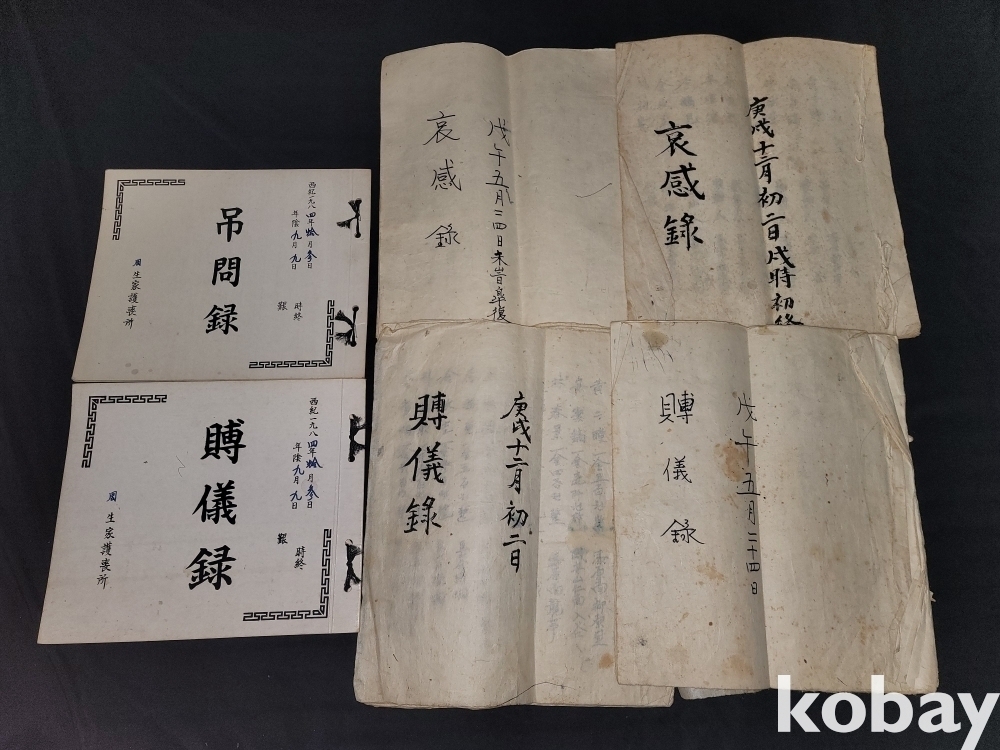 吊問録
西紀一九八四年拾月參日
年陰九月九日
時終
艱
生家護喪所
賻儀録
西紀一九八四年拾月參日
年陰九月九日
時終
艱
生家護喪所
哀感錄
戊午五月二四日未時皐復
哀感錄
庚戌十二月初二日戌時初終
賻儀錄
庚戌十二月初二日
賻儀錄
戊午五月二十四日
kobay